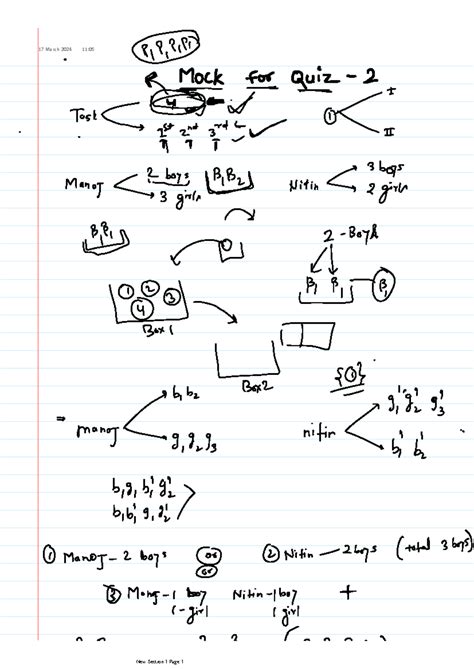 17 March 2024 11:05
P₁ P₁ P₁ P₁
Mock for Quiz - 2
Task 4
1st 2nd 3rd
1 I
II
Manoj 2 boys B₁ B₂
3 girls
Nitin 3 boys
2 girls
B₁ B₁
2 - Boys
B₁ B₁ B₁
1 2 3 4
Box 1
Box 2
{1}
Manoj b₁ b₂
g₁ g₂ g₃
nitin g₁' g₂' g₃'
b₁' b₂'
b₁ g₁ b₁' g₂'
b₁ b₁' g₁ g₂'
① Manoj - 2 boys or ② Nitin - 2 boys (total 3 boys)
or
③ Manoj - 1 boy Nitin - 1 boy +
1 - girl 1 girl
New Section 1 Page 1